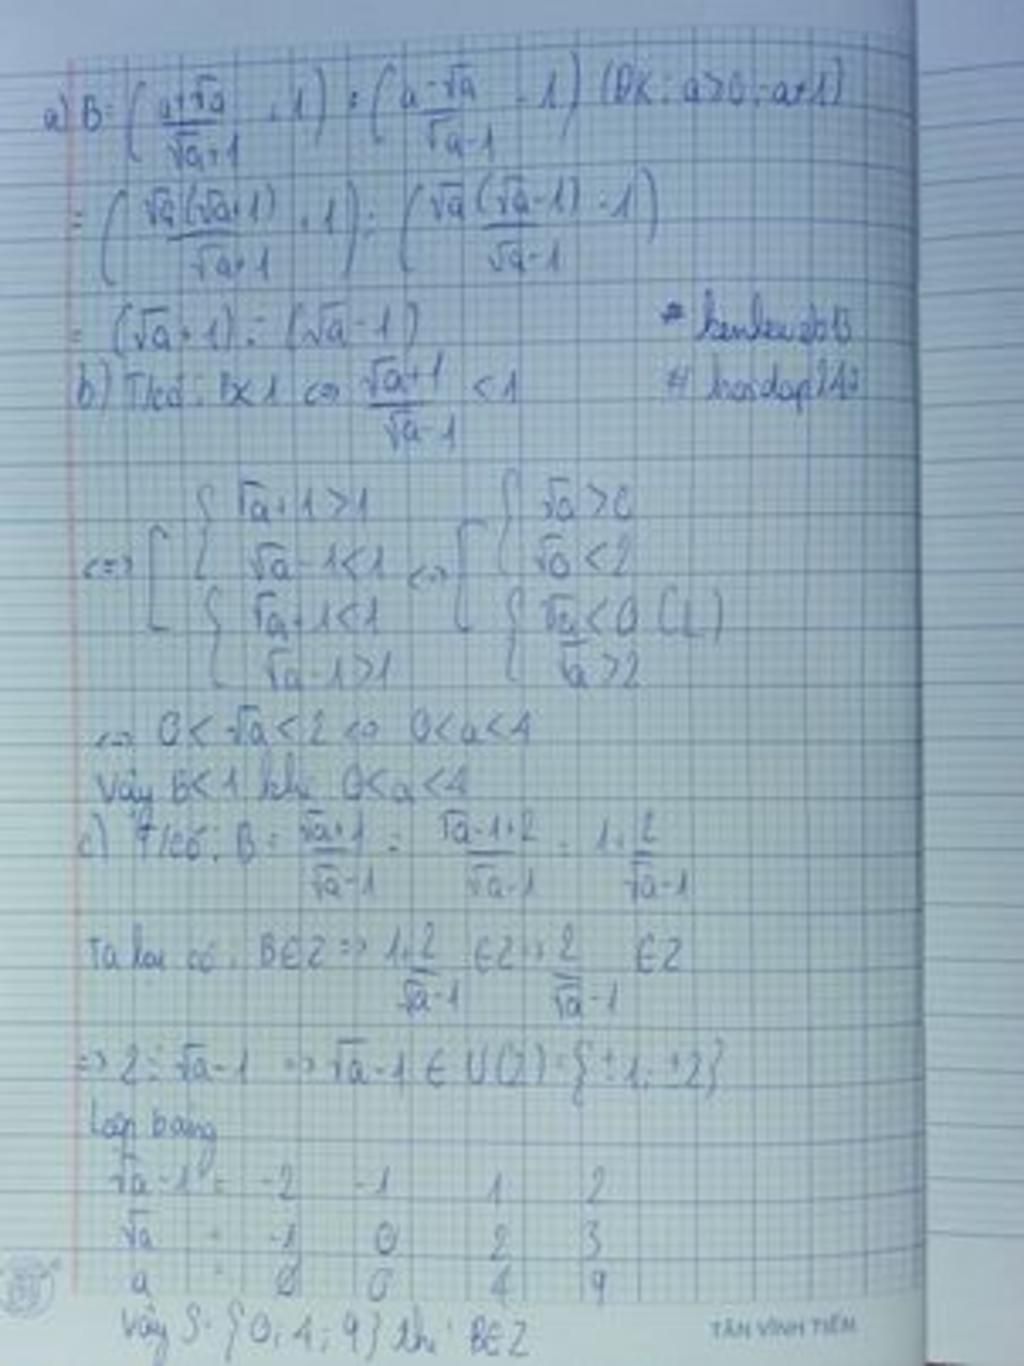 a) B = ( (a+√a)/(√a+1) + 1 ) : ( (a-√a)/(√a-1) - 1 ) (ĐK: a>0; a≠1)
= ( √a(√a+1)/(√a+1) + 1 ) : ( √a(√a-1)/(√a-1) - 1 )
= (√a+1) : (√a-1)
b) Ta có: B<1 <=> (√a+1)/(√a-1) < 1
# hoidap247
<=> [ { √a+1>1 ; √a-1<1 ; { √a+1<1 ; √a-1>1 <=> [ { √a>0 ; √a<2 ; { √a<0 (L) ; √a>2
<=> 0<√a<2 <=> 0<a<4
Vậy B<1 khi 0<a<4
c) Ta có: B = (√a+1)/(√a-1) = (√a-1+2)/(√a-1) = 1+2/(√a-1)
Ta lại có: B∈Z => 1+2/(√a-1) ∈Z => 2/(√a-1) ∈Z
=> 2 ⋮ √a-1 => √a-1 ∈ Ư(2) = {±1; ±2}
Lập bảng
√a-1 = -2 -1 1 2
√a = -1 0 2 3
a = Ø 0 4 9
Vậy S = {0; 4; 9} thì B∈Z
TÂN VĨNH TIẾN